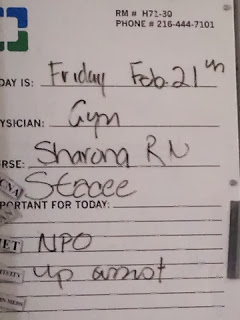 RM # H71-30
PHONE # 216-444-7101
DAY IS: Friday Feb. 21th
YSICIAN: Gyn
RSE: Sharona RN
CNA Stacee
PORTANT FOR TODAY:
IET NPO
TIVITY up assist
IN MEDS